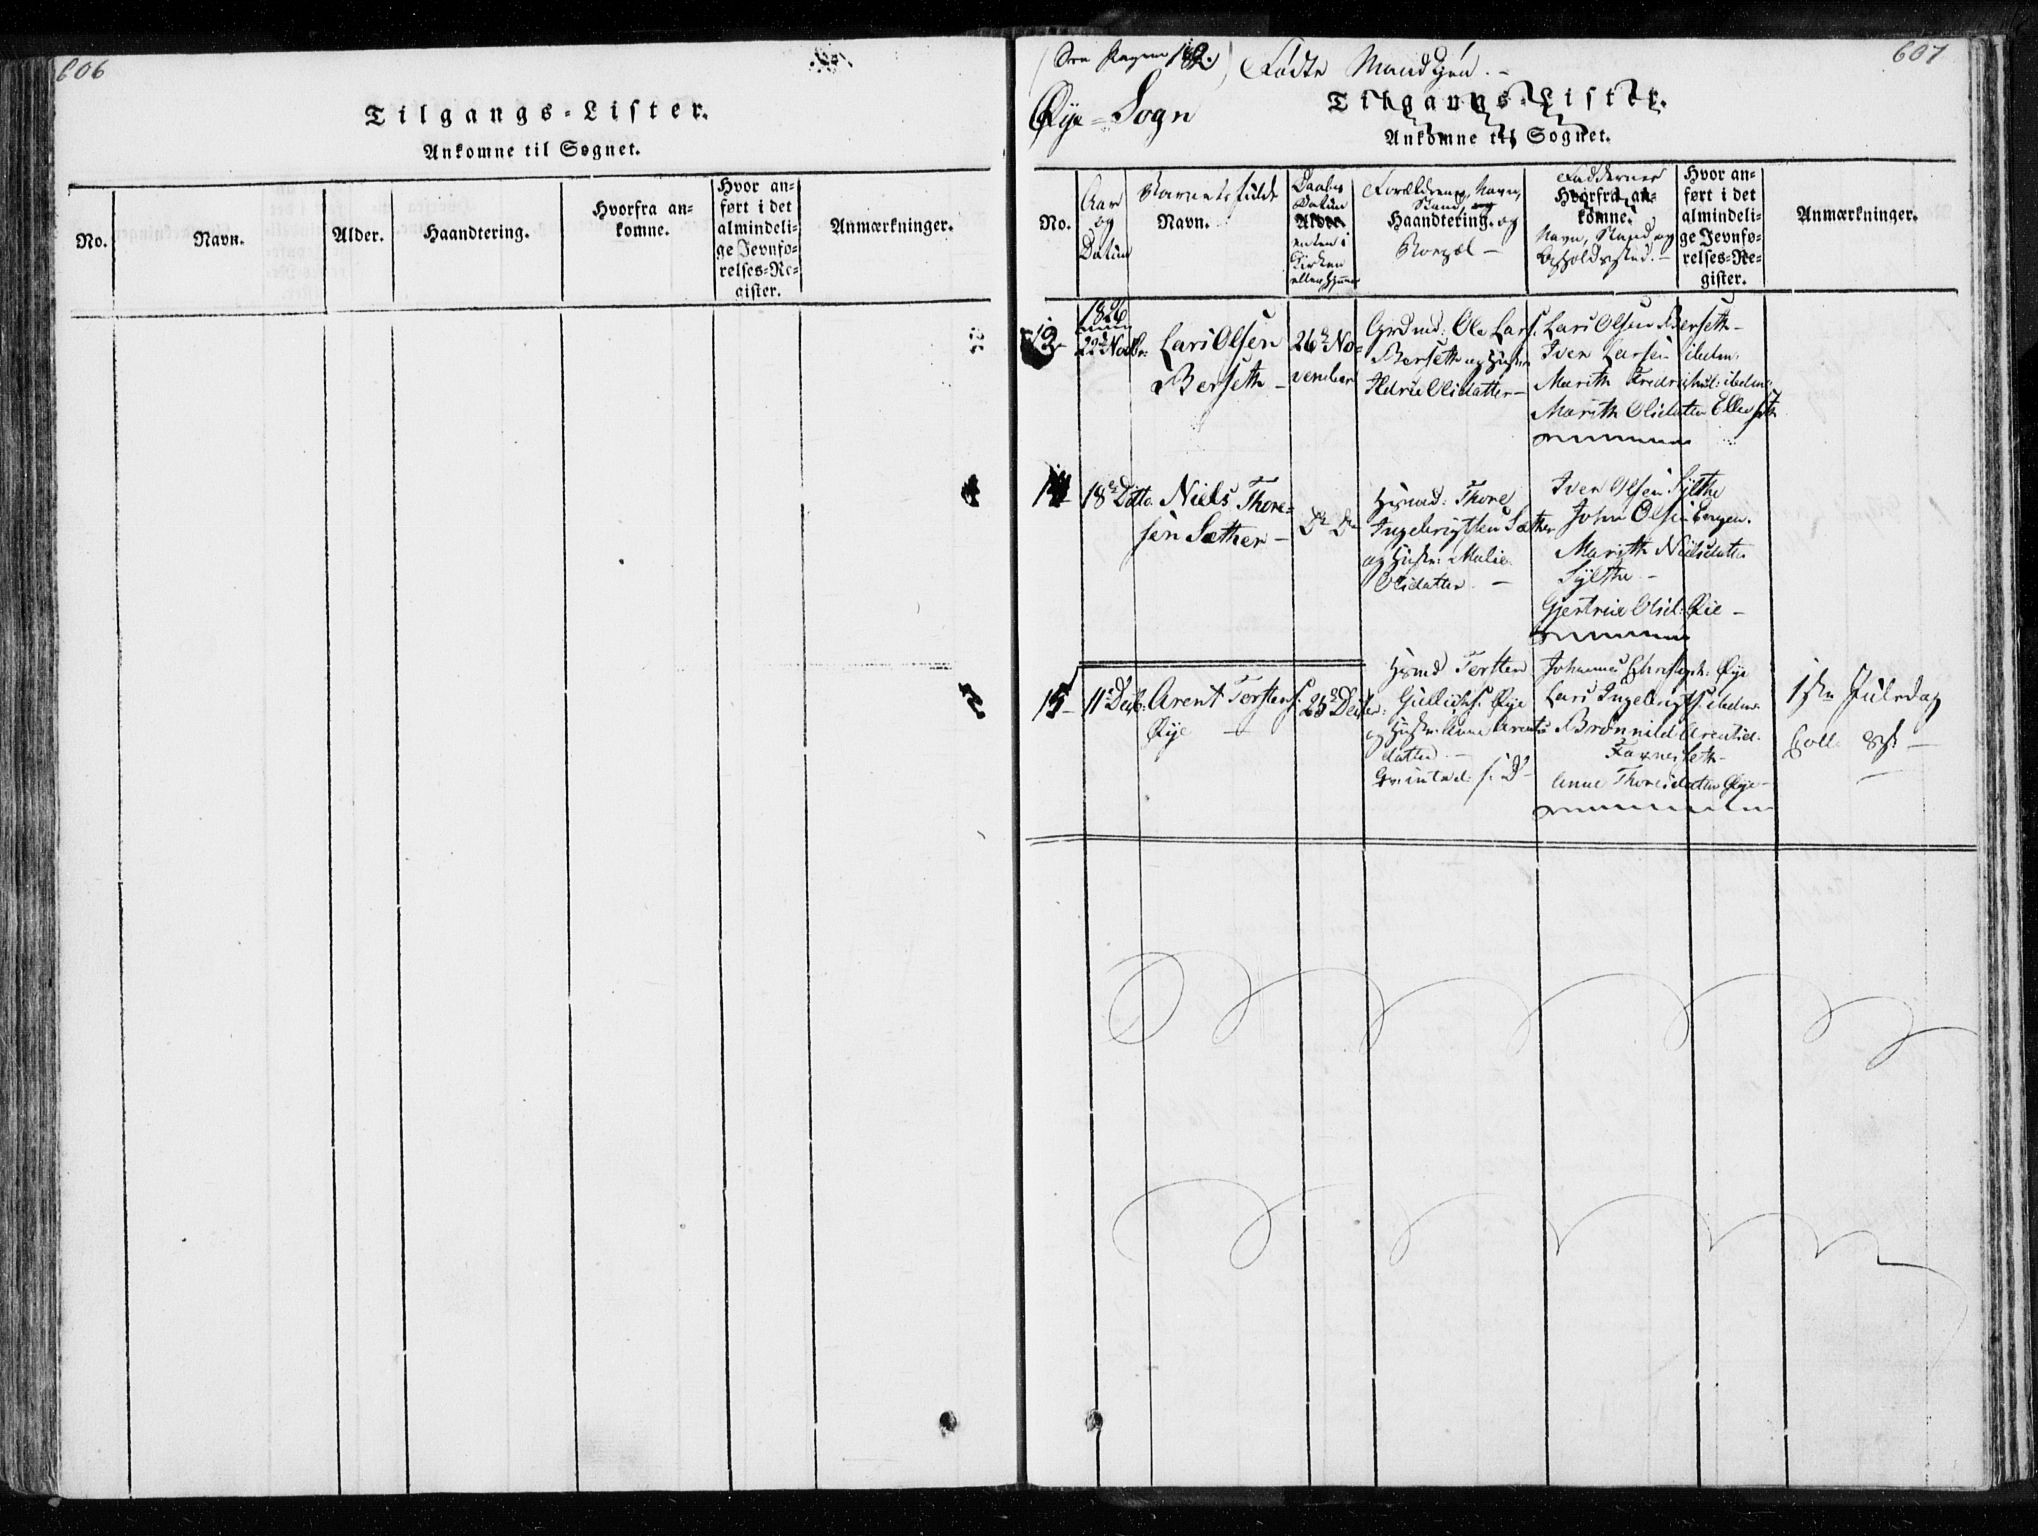 606
Tilgangs-Lister.
Ankomne til Sognet.
No.
Navn.
Alder.
Haandtering.
Hvorfra an-
komne.
Hvor an-
ført i det
almindeli-
ge Jevnfø-
relses-Re-
gister.
Anmærkninger.
607
(See Pagina 182.) Fødte Mandkjøn. -
Øye-Sogn
Tilgangs-Lister.
Ankomne til Sognet.
No.
Aar
og
Datum
Barnets fulde
Navn.
Daabs
Datum
Alder
enten i
Kirken
eller hjemme
Forældrenes Navn,
Stand og
Haandtering. og
Bopæl -
Faddernes
Hvorfra an-
komne.
Navn, Stand og
Opholdssted. -
Hvor an-
ført i det
almindeli-
ge Jevnfø-
relses-Re-
gister.
Anmærkninger.
1826
13 22de Novbr: Lars Olsen
Berseth -
26de No-
vember
Grdmd: Ole Lars.
Berseth og Hustr
Olsdatter -
Lars Olsen Berseth -
Iver Larsen ibdm.
Marith Fredrichsd: ibdm:
Marith Olsdatter
14 18de Ditto Niels Thore-
sen Sæther -
Do Do
Husmd: Thore
Ingebrigtsen Sæther
og Hustr: Malie
Olsdatter -
Iver Olsen Sylthe
John Olsen
Marith Nielsdatter
Sylthe -
Gjertrue Olsd: Øie -
15 11te Decb: Arent Torstens.
Øye -
25de Decber:
Husmd Torsten
Gullichs. Øye
og Hustr: Anne Arents
datter -
Johannes Christoph. Øye
Lars Ingebrigts. ibdm:
Brønnild Arentsd.
Farnes
Anne Thoresdatter Øye -
1ste Juledag